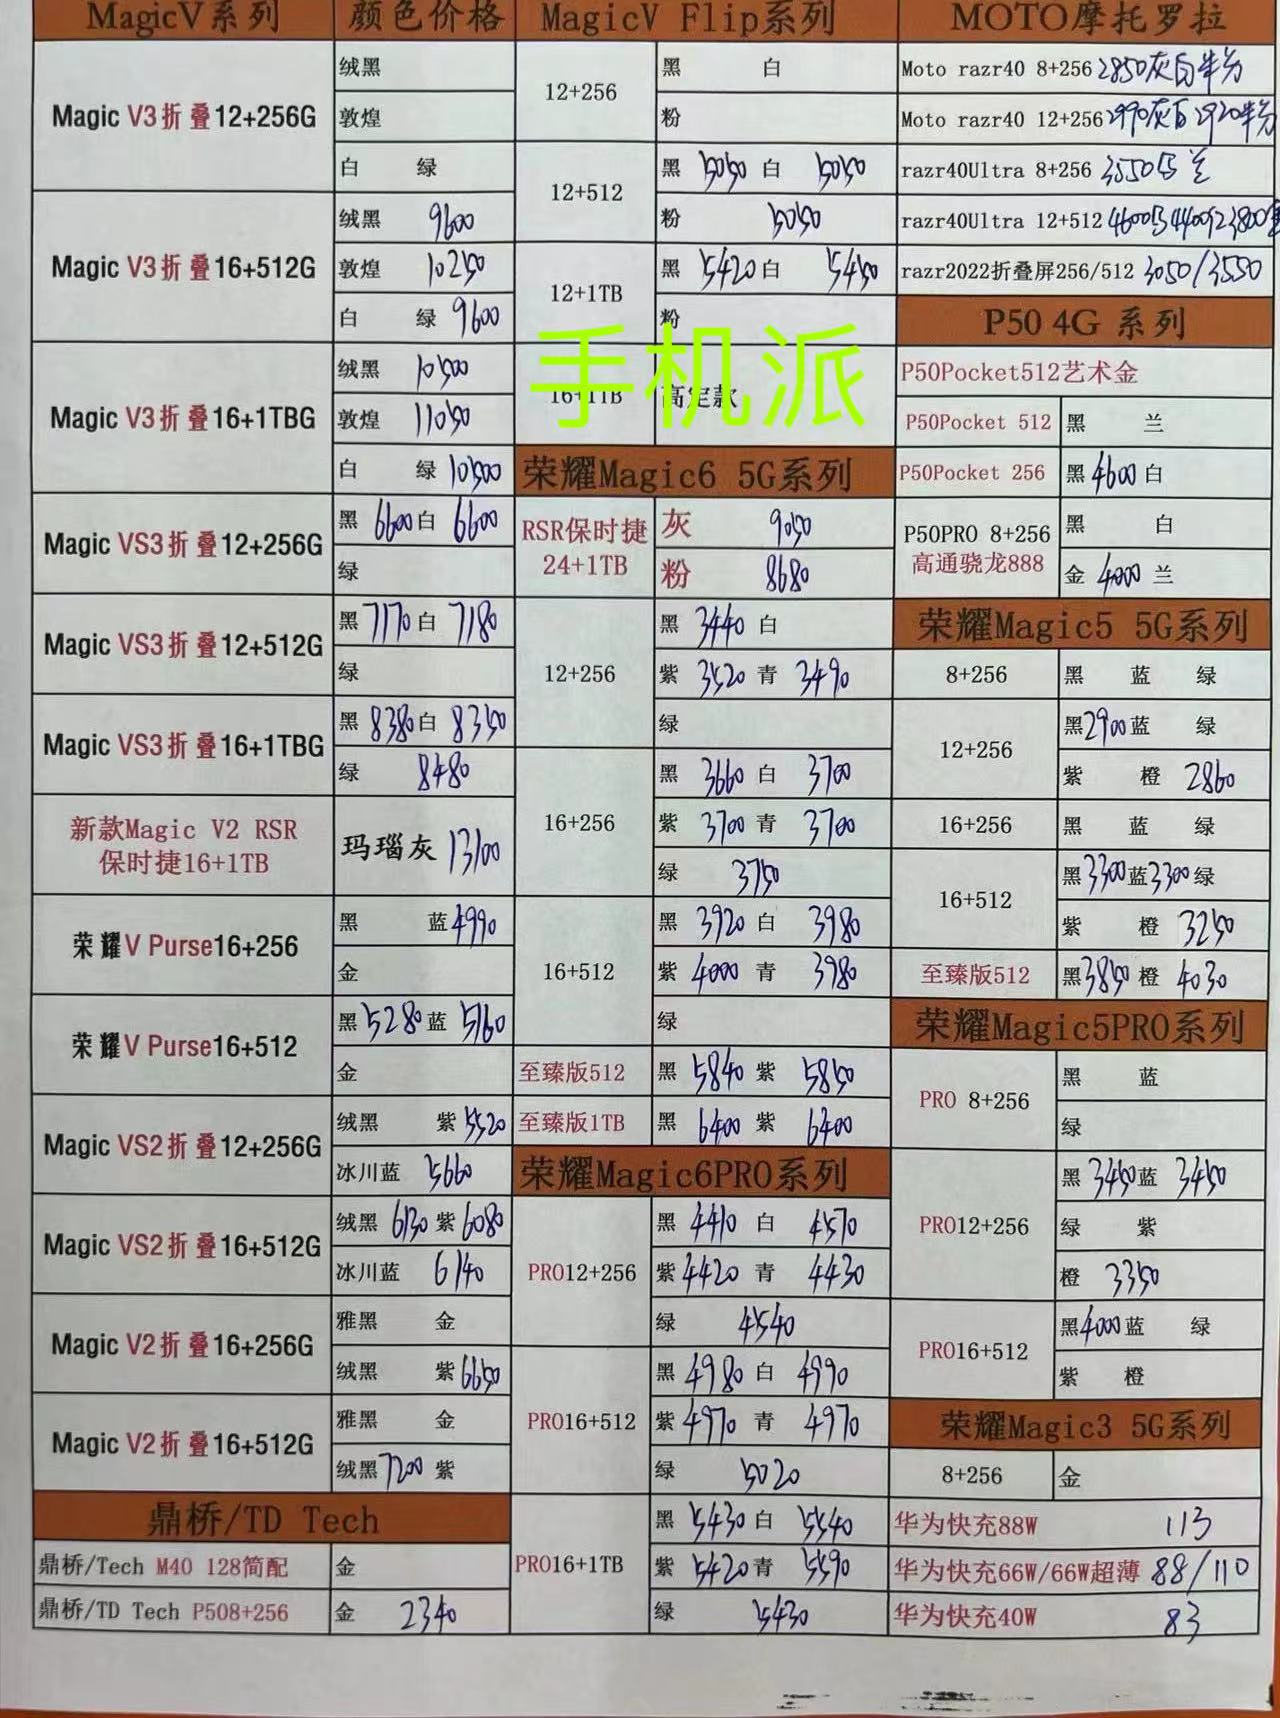 MagicV系列 颜色价格
Magic V3折叠12+256G
绒黑
敦煌
白 绿
Magic V3折叠16+512G
绒黑 9600
敦煌 10250
白 绿 9600
Magic V3折叠16+1TBG
绒黑 10500
敦煌 11050
白 绿 10500
Magic VS3折叠12+256G
黑 6600 白 6600
绿
Magic VS3折叠12+512G
黑 7170 白 7180
绿
Magic VS3折叠16+1TBG
黑 8380 白 8350
绿 8480
新款Magic V2 RSR
保时捷16+1TB
玛瑙灰 13100
荣耀V Purse16+256
黑 蓝 4990
金
荣耀V Purse16+512
黑 5280 蓝 5160
金
Magic VS2折叠12+256G
绒黑 紫 5520
冰川蓝 5660
Magic VS2折叠16+512G
绒黑 6130 紫 6080
冰川蓝 6140
Magic V2折叠16+256G
雅黑 金
绒黑 紫 6650
Magic V2折叠16+512G
雅黑 金
绒黑 7200 紫
鼎桥/TD Tech
鼎桥/Tech M40 128简配 金
鼎桥/TD Tech P508+256 金 2340
MagicV Flip系列
12+256
黑 白
粉
12+512
黑 5050 白 5050
粉 5050
12+1TB
黑 5420 白 5450
粉
16+1TB 高定款
手机派
荣耀Magic6 5G系列
RSR保时捷
24+1TB
灰 9050
粉 8680
12+256
黑 3440 白
紫 3520 青 3490
绿
16+256
黑 3660 白 3700
紫 3700 青 3700
绿 3750
16+512
黑 3920 白 3980
紫 4000 青 3980
绿
至臻版512 黑 5840 紫 5850
至臻版1TB 黑 6400 紫 6400
荣耀Magic6PRO系列
PRO12+256
黑 4410 白 4570
紫 4420 青 4430
绿 4540
PRO16+512
黑 4980 白 4990
紫 4970 青 4970
绿 5020
PRO16+1TB
黑 5430 白 5540
紫 5420 青 5590
绿 5430
MOTO摩托罗拉
Moto razr40 8+256 2850灰白
Moto razr40 12+256 2990灰白 2920
razr40Ultra 8+256 3550
razr40Ultra 12+512 4600 4400 3800
razr2022折叠屏256/512 3050/3550
P50 4G 系列
P50Pocket512艺术金
P50Pocket 512 黑 兰
P50Pocket 256 黑 4600 白
P50PRO 8+256
高通骁龙888
黑 白
金 4000 兰
荣耀Magic5 5G系列
8+256 黑 蓝 绿
12+256
黑 2900 蓝 绿
紫 橙 2860
16+256 黑 蓝 绿
16+512
黑 3300 蓝 3300 绿
紫 橙 3250
至臻版512 黑 3850 橙 4030
荣耀Magic5PRO系列
PRO 8+256
黑 蓝
绿
PRO12+256
黑 3450 蓝 3450
绿 紫
橙 3350
PRO16+512
黑 4000 蓝 绿
紫 橙
荣耀Magic3 5G系列
8+256 金
华为快充88W 113
华为快充66W/66W超薄 88/110
华为快充40W 83